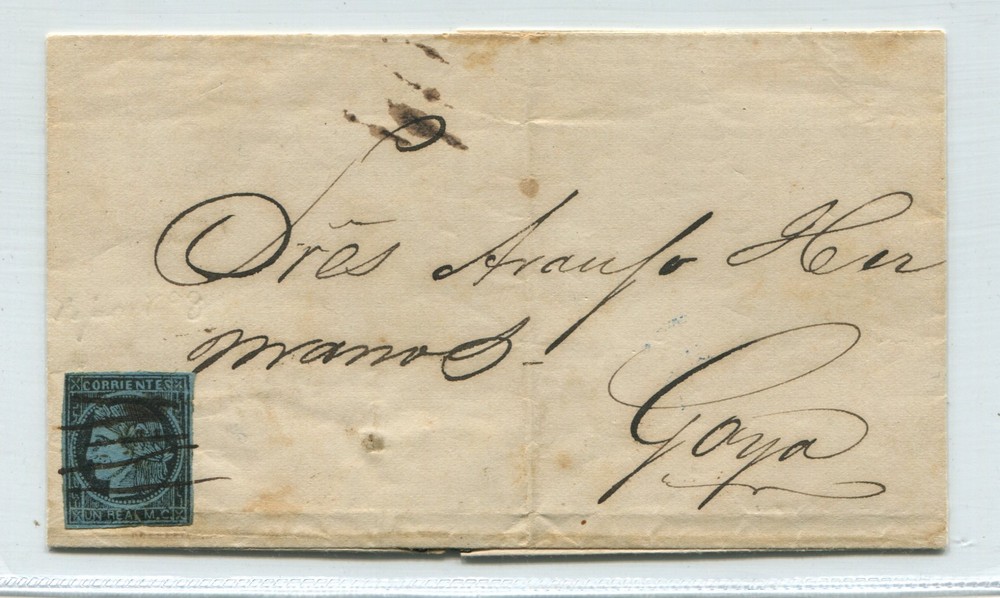 Srẽs Araujo Her
manos -
Goya
CORRIENTES
UN REAL M.C.